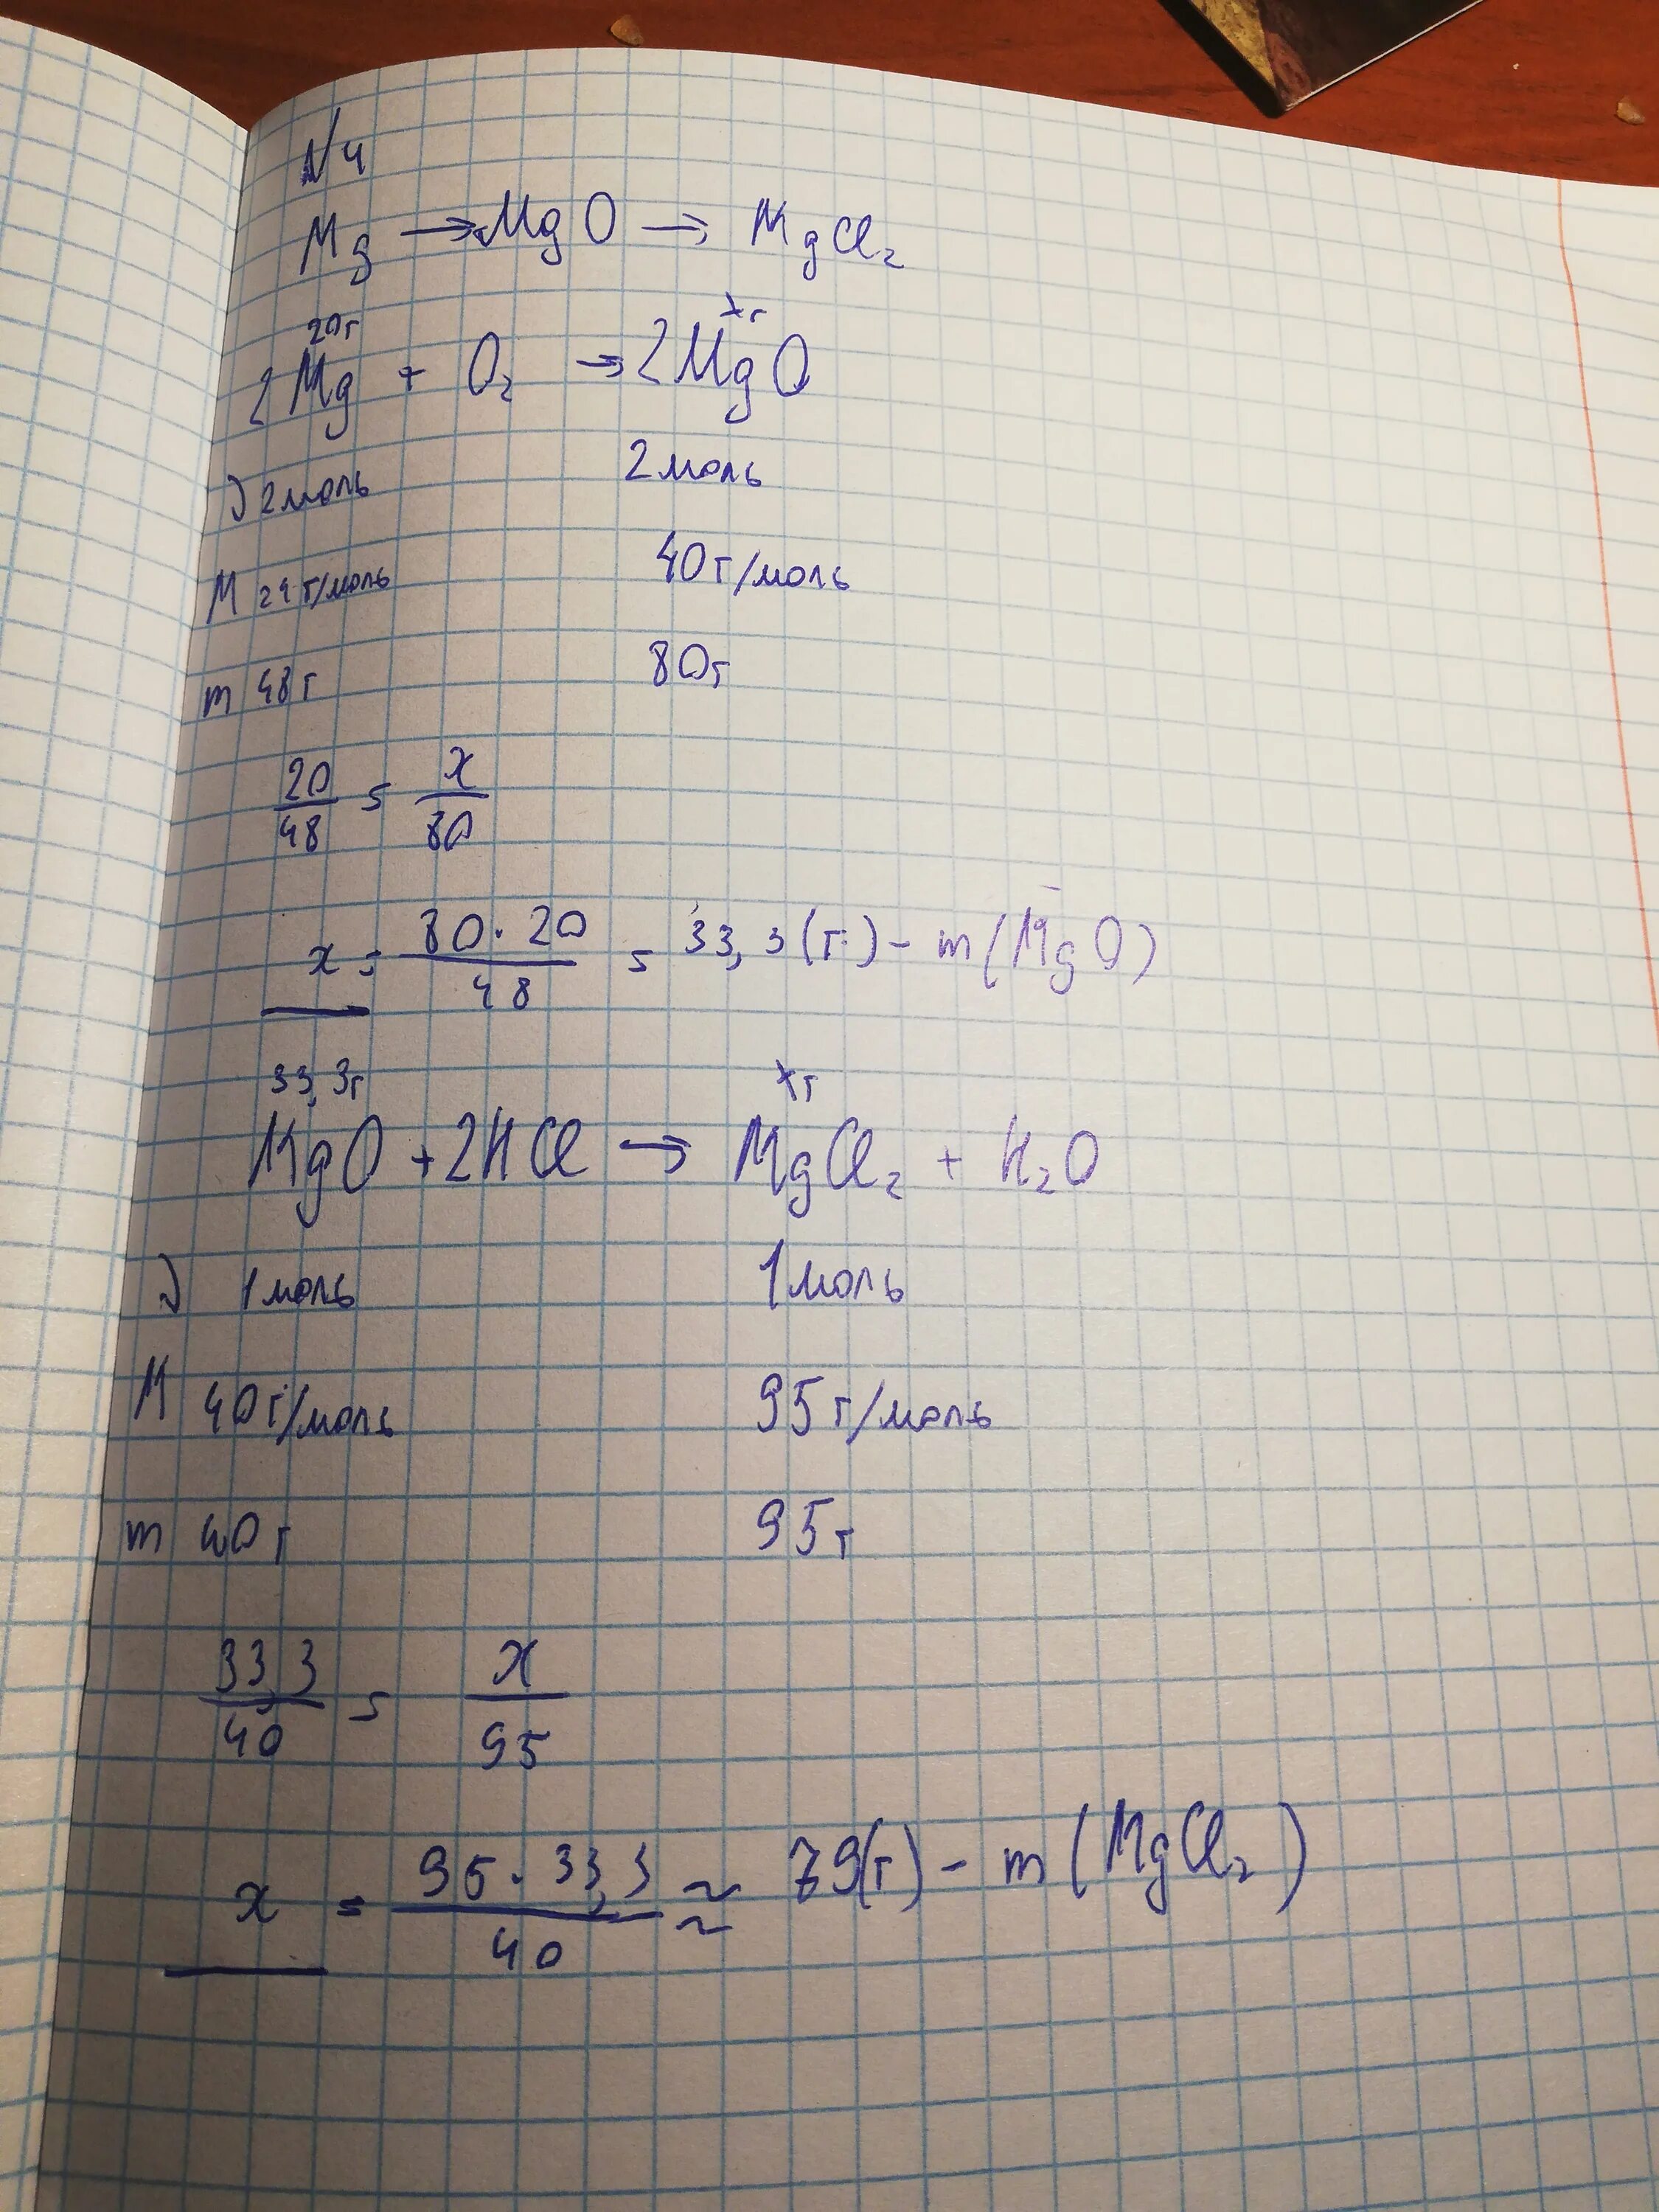 N4
Mg → MgO → MgCl₂
20г xг
2Mg + O₂ → 2MgO
ν 2моль 2моль
M 24г/моль 40г/моль
m 48г 80г
20/48 = x/80
x = 80·20/48 = 33,3(г) - m(MgO)
33,3г xг
MgO + 2HCl → MgCl₂ + H₂O
ν 1моль 1моль
M 40г/моль 95г/моль
m 40г 95г
33,3/40 = x/95
x = 95·33,3/40 ≈ 79(г) - m(MgCl₂)